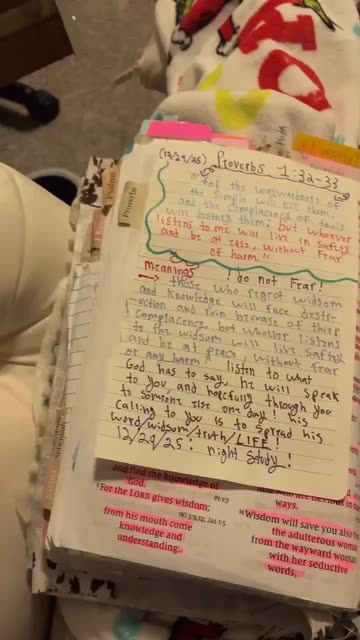 Psalms
Proverbs
(12/29/25) Proverbs -1:32-33
"for the waywardness of
the simple will kill them,
and the complacence of fools
will destory them; but whoever
listens to me will live in safety
and be at rise, without Frar
of harm."
Meanings ! do not Frar!
→ those who regret widsom
and knowledge will face dystr-
uction and ruin bircause of thirr
complacency, but whoever listens
to the widsom will live saftly
and be at peace, without frar
or any harm. listen to what
God has to say, he will speak
to you, and hopefully through you
to someone rlse one day! his
calling to you is to spread his
word/widsom/truth/LIFE!
12/29/25! night study!
and find the knowledge of
God.
⁶For the LORD gives wisdom;
from his mouth come
knowledge and
understanding.
you who are devious in
ways.
¹⁶Wisdom will save you also
the adulterous woman
from the wayward woman
with her seductive
words,